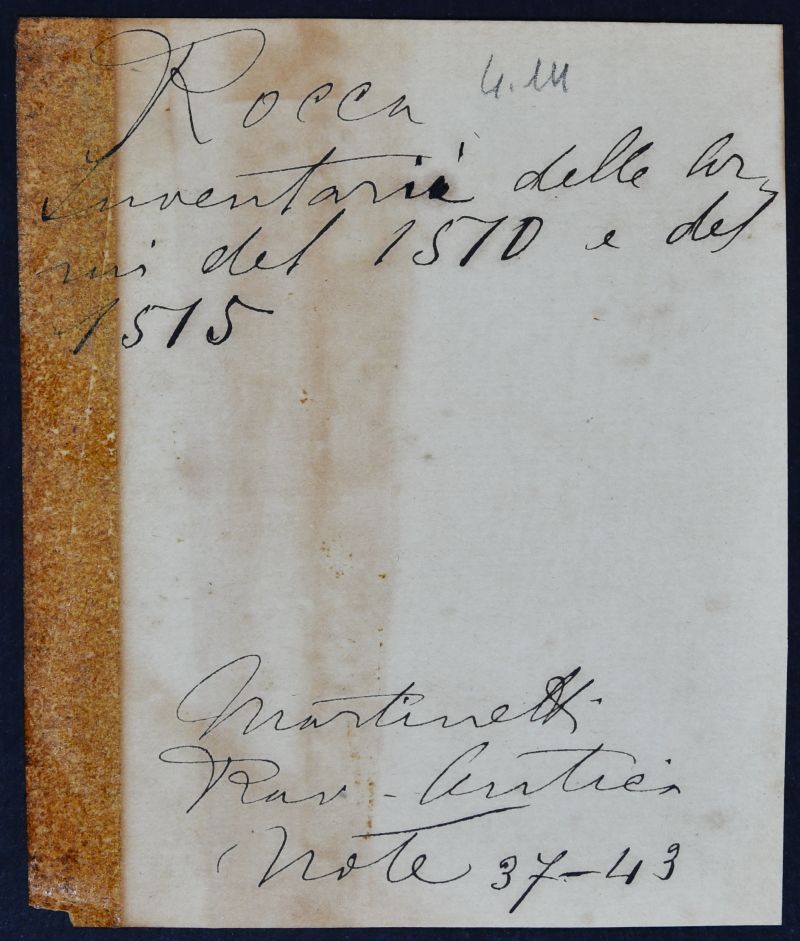 Rocca 4.111
Inventarii delle Ar-
mi del 1510 e del
1515
Martinetti
Rav-Antica
Note 37-43